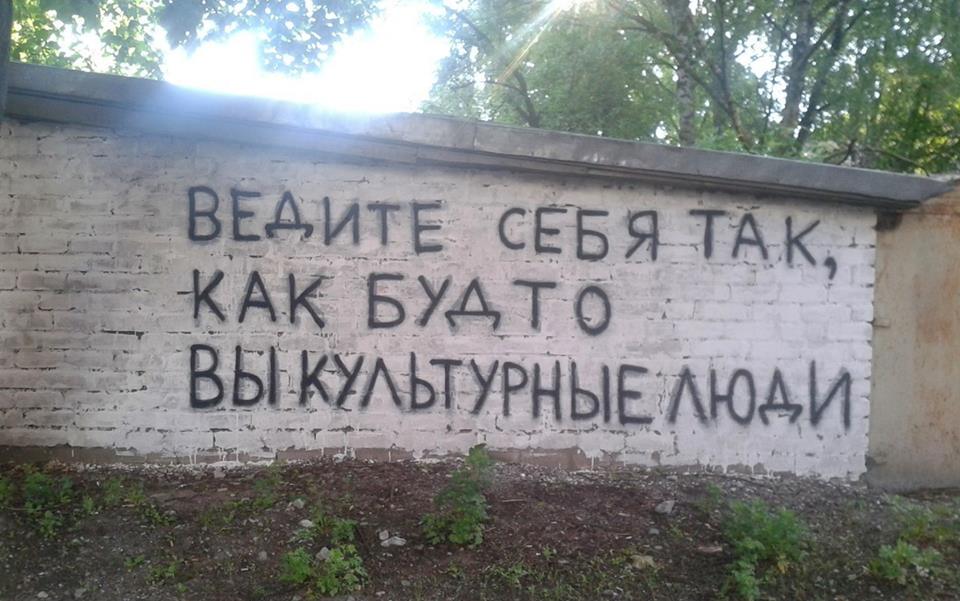 ВЕДИТЕ СЕБЯ ТАК,
КАК БУДТО
ВЫ КУЛЬТУРНЫЕ ЛЮДИ